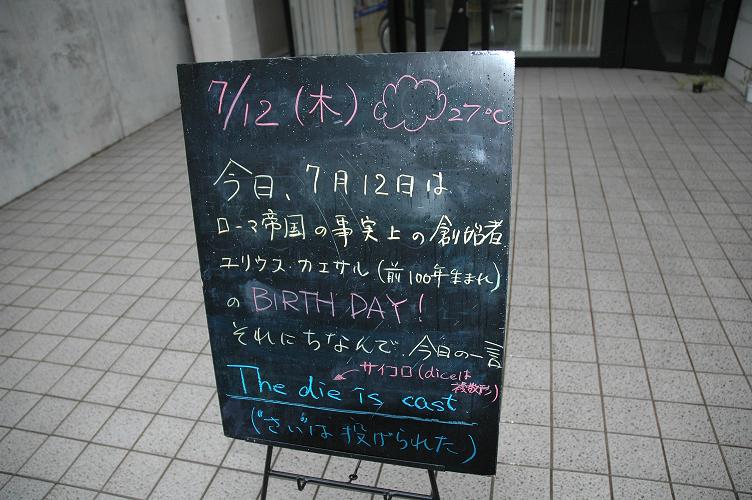 7/12(木) 27℃
今日、7月12日は
ローマ帝国の事実上の創始者
ユリウス・カエサル(前100年生まれ)
の BIRTH DAY!
それにちなんで、今日の一言
サイコロ(diceは
複数形)
The die is cast
("さい"は投げられた)